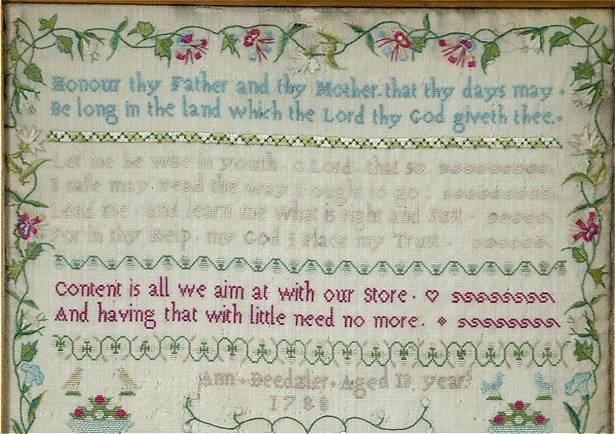 Honour thy Father and thy Mother that thy days may
Be long in the land which the Lord thy God giveth thee.
Let me be wise in youth O Lord that so
I safe may read the way I ought to go
Lead me and learn me what is right and Just
For in thy Help my God I Place my Trust
Content is all we aim at with our Store
And having that with little need no more.
Ann Aged 12 years
1788